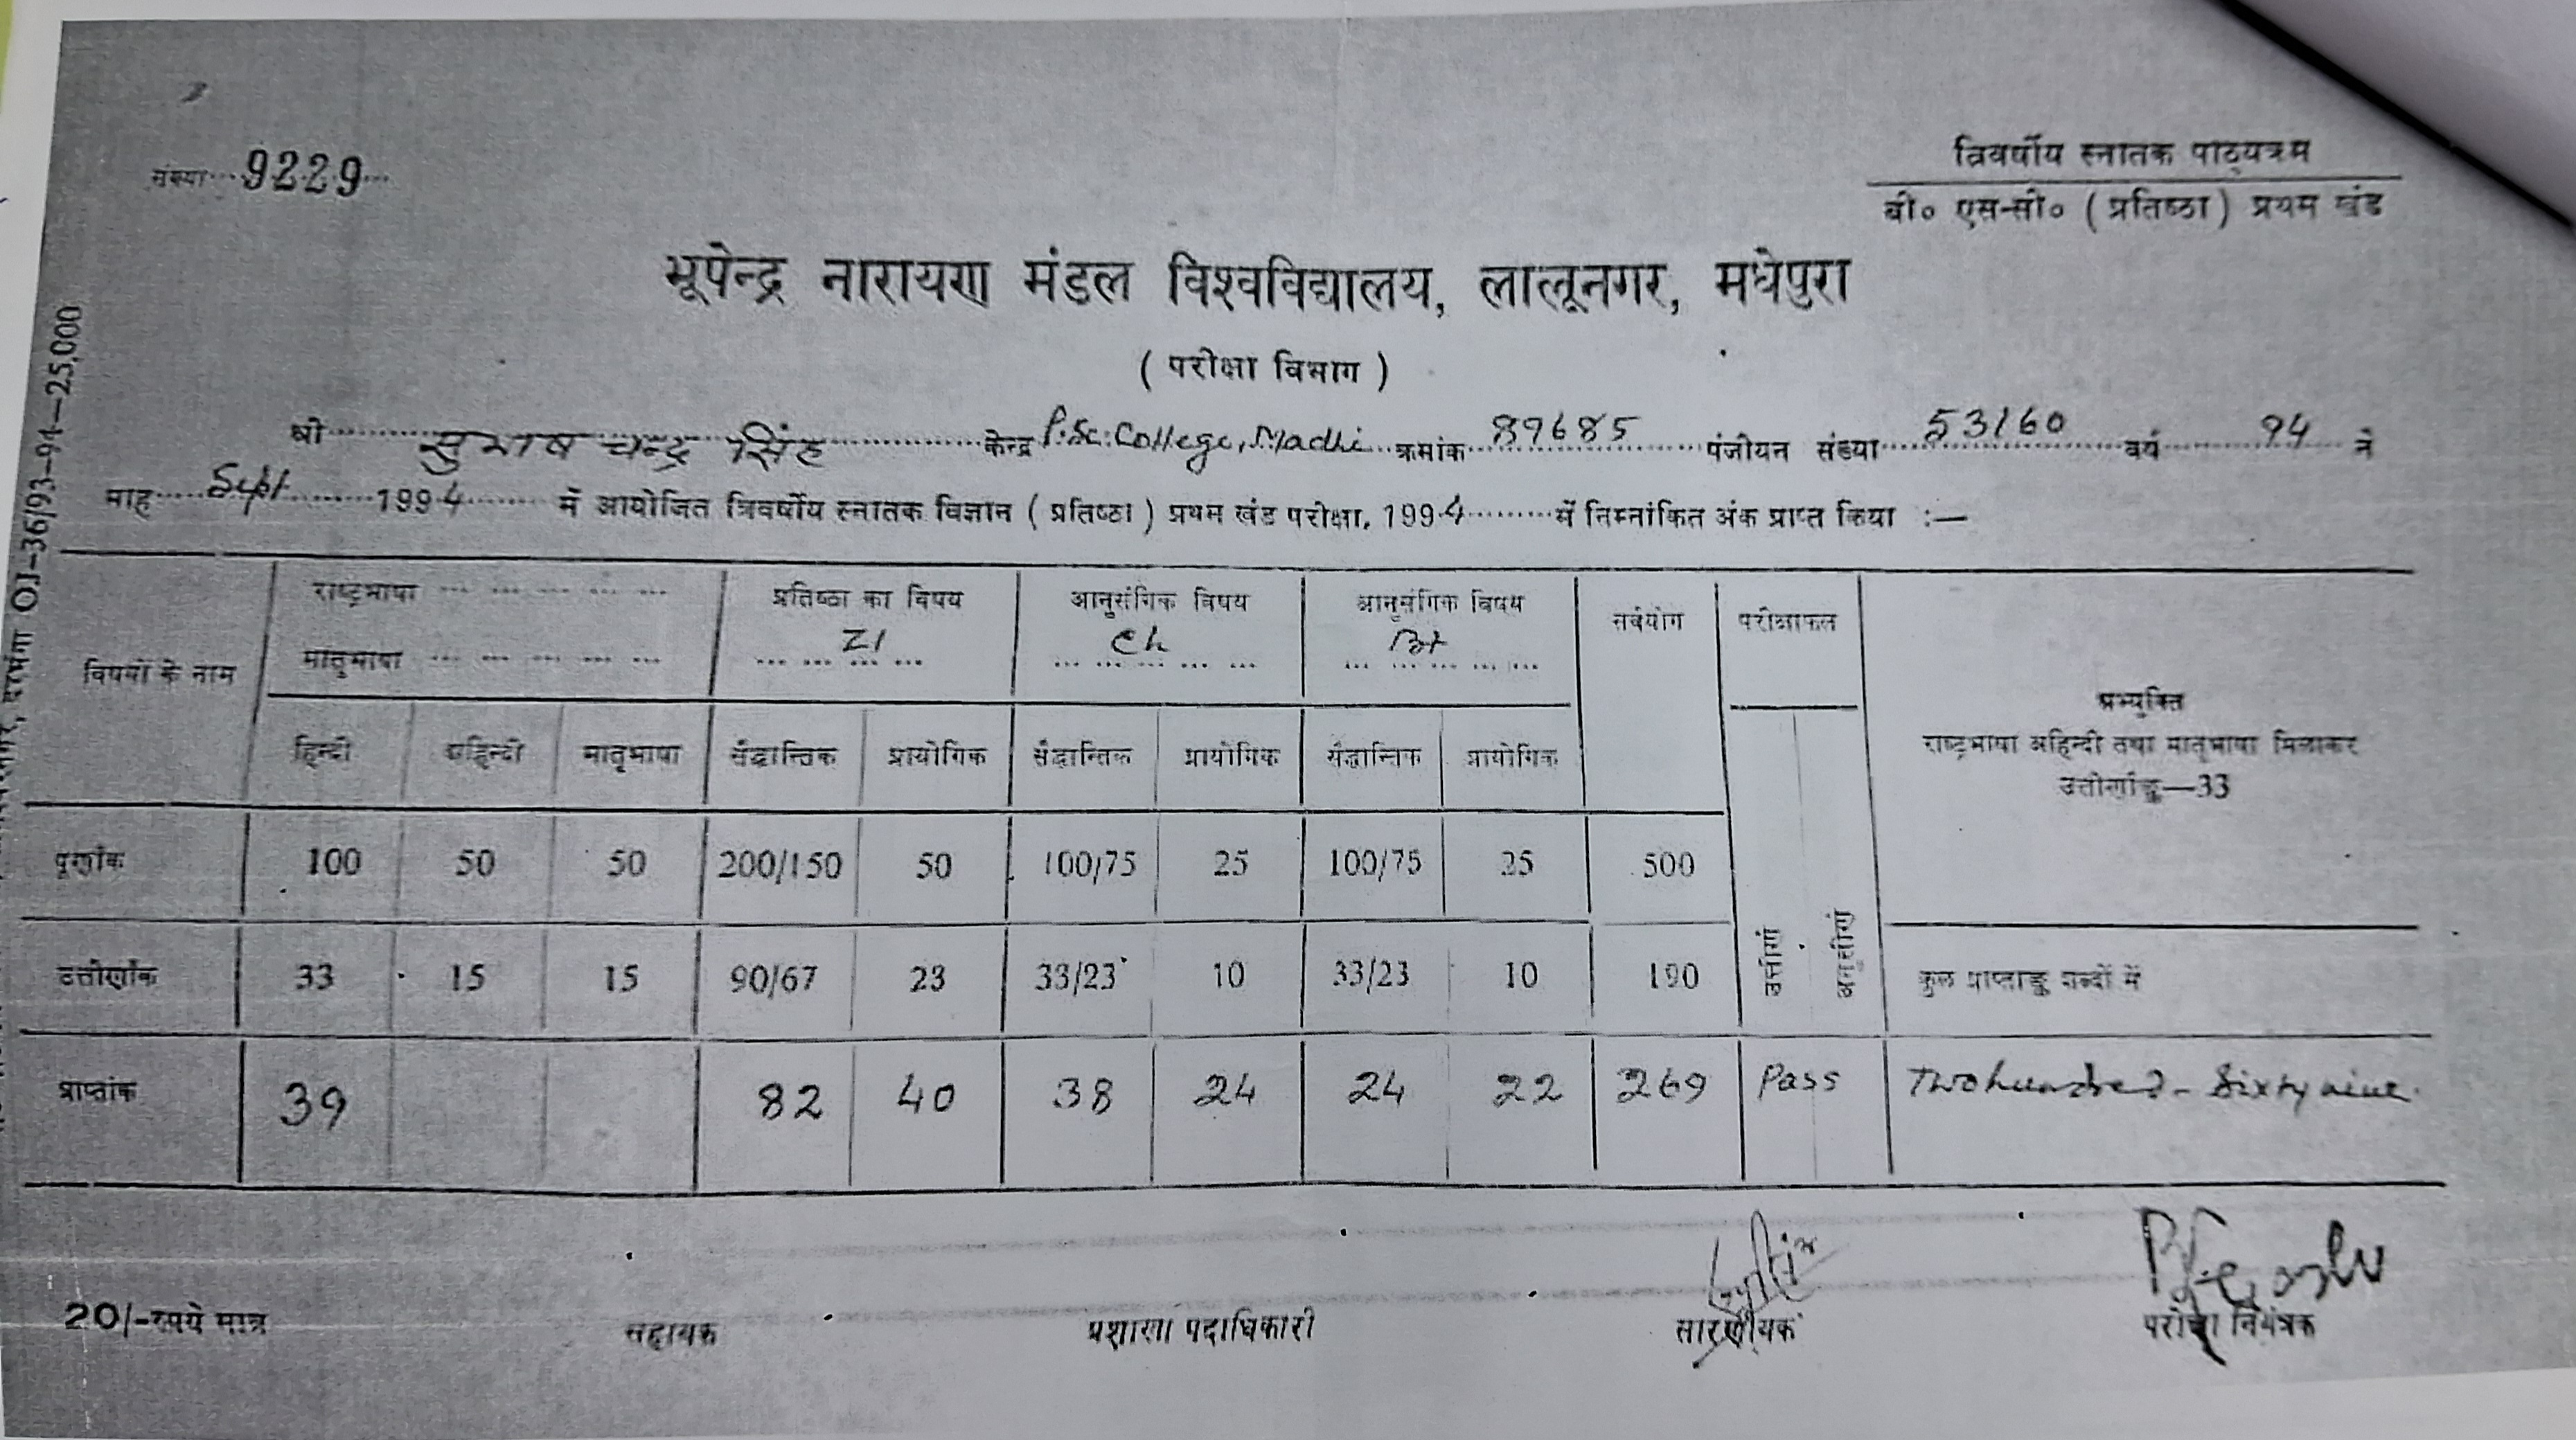 संख्या 9229
त्रिवर्षीय स्नातक पाठ्यक्रम
बी० एस-सी० ( प्रतिष्ठा ) प्रथम खंड
भूपेन्द्र नारायण मंडल विश्वविद्यालय, लालूनगर, मधेपुरा
( परीक्षा विभाग )
श्री सुभाष चन्द्र सिंह केन्द्र P.Sc. College, Madhi क्रमांक 89685 पंजीयन संख्या 53160 वर्ष 94 ने
माह Sept 1994 में आयोजित त्रिवर्षीय स्नातक विज्ञान ( प्रतिष्ठा ) प्रथम खंड परीक्षा, 1994 में निम्नांकित अंक प्राप्त किया :—
विषयों के नाम
राष्ट्रभाषा
मातृभाषा
प्रतिष्ठा का विषय
Zl
आनुसंगिक विषय
Ch
आनुसंगिक विषय
Bt
सर्वयोग
परीक्षाफल
प्रभ्युक्ति
राष्ट्रभाषा अहिन्दी तथा मातृभाषा मिलाकर
उत्तीर्णाङ्क—33
हिन्दी अहिन्दी मातृभाषा सैद्धान्तिक प्रायोगिक सैद्धान्तिक प्रायोगिक सैद्धान्तिक प्रायोगिक
पूर्णांक 100 50 50 200/150 50 100/75 25 100/75 25 500
उत्तीर्णांक 33 15 15 90/67 23 33/23 10 33/23 10 190 उत्तीर्ण अनुत्तीर्ण कुल प्राप्ताङ्क शब्दों में
प्राप्तांक 39 82 40 38 24 24 22 269 Pass Two hundred - Sixty nine
20/-रुपये मात्र सहायक प्रशाखा पदाधिकारी सारणीयक परीक्षा नियंत्रक
दरभंगा OJ-36/93-94—25,000